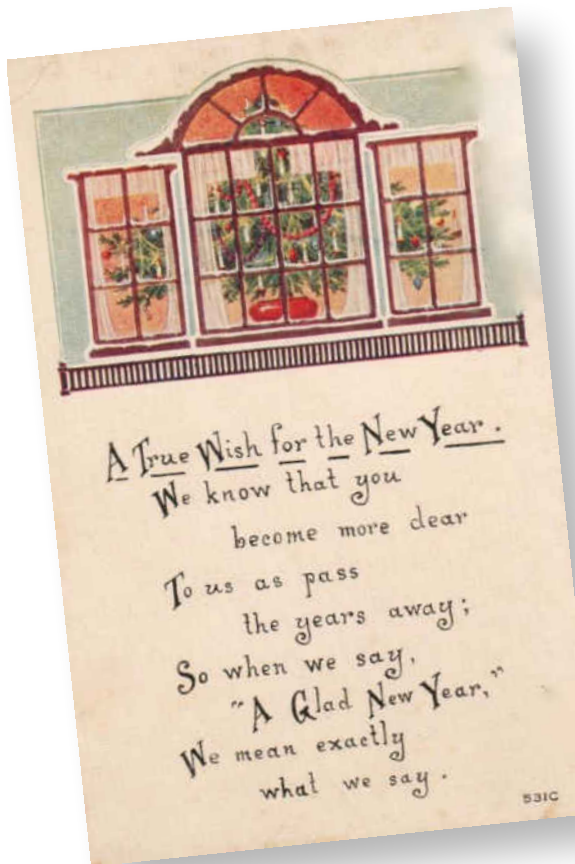 A True Wish for the New Year.
We know that you
become more dear
To us as pass
the years away;
So when we say,
"A Glad New Year,"
We mean exactly
what we say.
531C